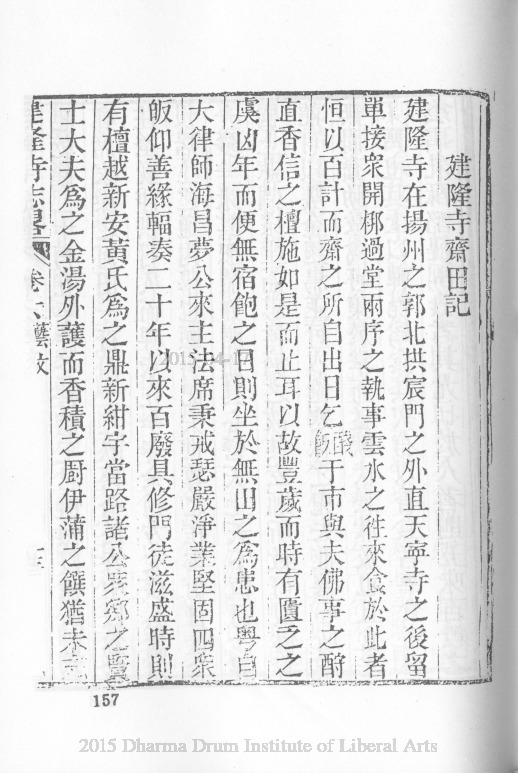 建隆寺齋田記
建隆寺在揚州之郭北拱宸門之外直天寧寺之後留
單接衆開梆過堂兩序之執事雲水之徃來食於此者
恒以百計而齋之所自出日乞飯于市與夫佛事之酧
直香信之檀施如是而止耳以故豐歲而時有匱乏之
虞凶年而便無宿飽之日則坐於無田之為患也粤自
大律師海昌夢公來主法席秉戒瑟嚴淨業堅固四衆
皈仰善緣輻奏二十年以來百廢具修門徒滋盛時則
有檀越新安黄氏為之鼎新紺宇當路諸公與鄉之賢
士大夫為之金湯外護而香積之厨伊蒲之饌猶未
建隆寺志畧 卷六藝文
157
2015-4-17
2015 Dharma Drum Institute of Liberal Arts